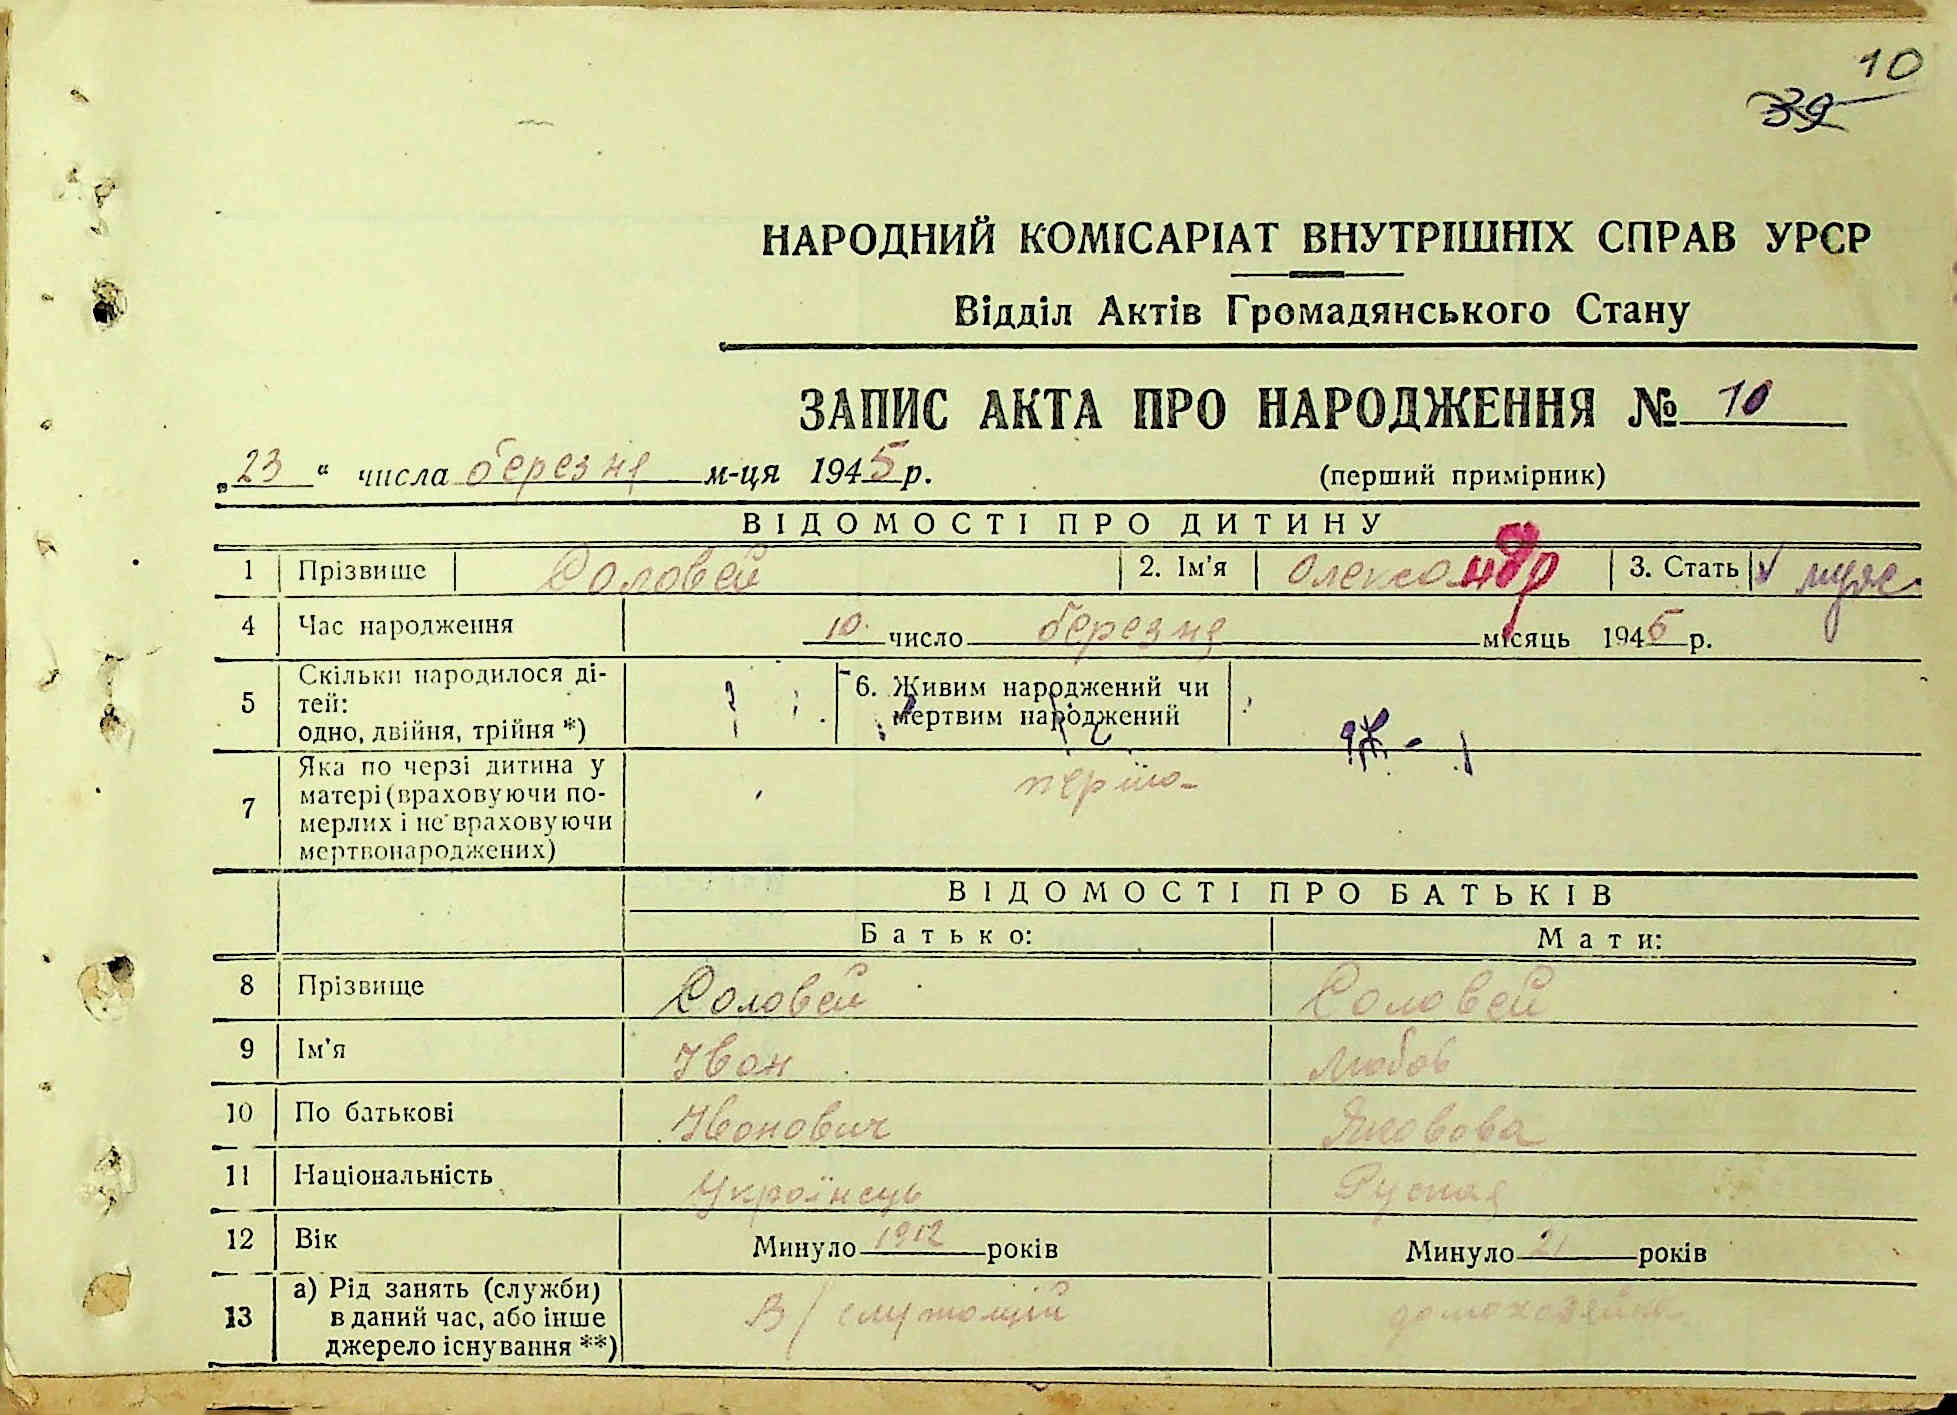 10
39
НАРОДНИЙ КОМІСАРІАТ ВНУТРІШНІХ СПРАВ УРСР
Відділ Актів Громадянського Стану
ЗАПИС АКТА ПРО НАРОДЖЕННЯ № 10
„23“ числа березня м-ця 1945 р. (перший примірник)
ВІДОМОСТІ ПРО ДИТИНУ
1 Прізвище Соловей 2. Ім'я Олександр 3. Стать муж
4 Час народження 10 число березня місяць 1945 р.
5 Скільки народилося ді-
тей:
одно, двійня, трійня *)
6. Живим народжений чи
мертвим народжений
7 Яка по черзі дитина у
матері (враховуючи по-
мерлих і не враховуючи
мертвонароджених)
перша
ВІДОМОСТІ ПРО БАТЬКІВ
Батько: Мати:
8 Прізвище Соловей Соловей
9 Ім'я Іван Любов
10 По батькові Іванович Яковова
11 Національність Українець Руская
12 Вік Минуло 1912 років Минуло 21 років
13 а) Рід занять (служби)
в даний час, або інше
джерело існування **)
В/служащий домохозяйка